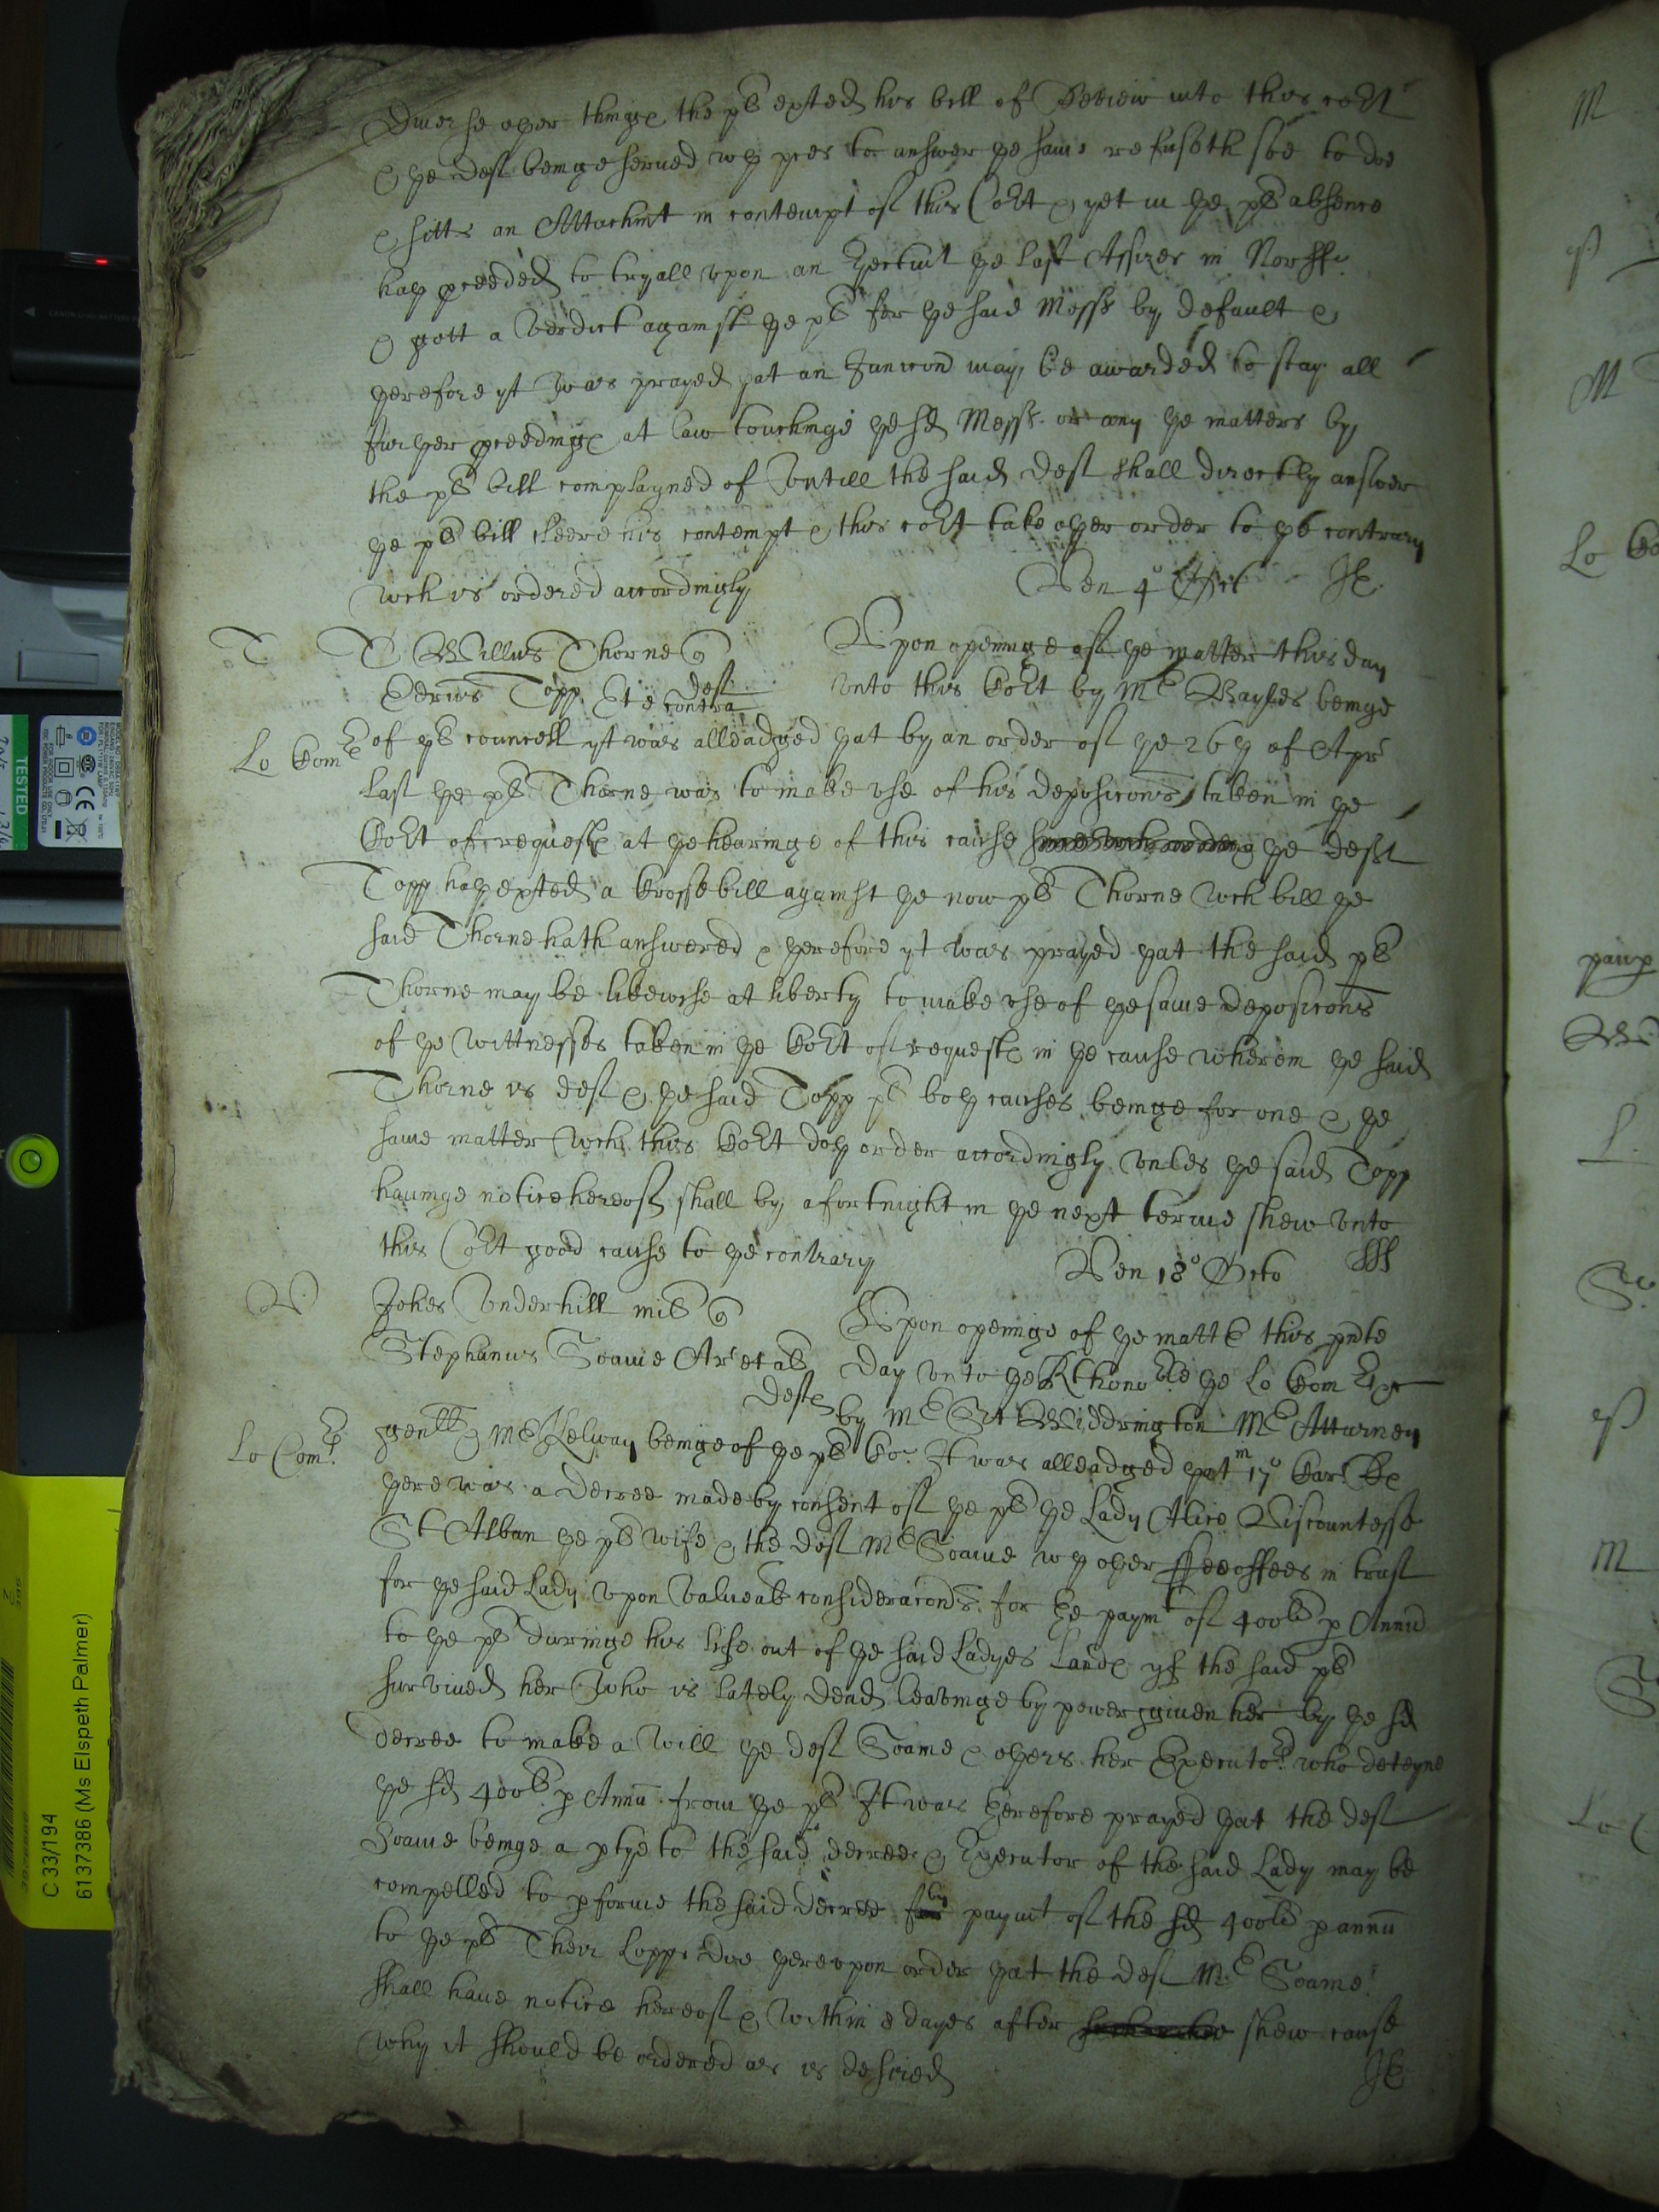 Diuerse oyer things the pl exited his bill of Review into this cort
& ye deft beinge serued wth pces to answer ye same refuseth soe to doe
& sitts an Attachmt in contempt of this Cort & yet in ye pls absence
hath pceeded to tryall vpon an Eiectmt ye last Assizes in Norff
& gott a verdict against ye pl for ye said Mess by default &
yerefore yt was prayed yat an Iuncion may be awarded to stay all
furyer pceedings at law touchinge ye sd Mess or any ye matters by
the pls bill complayned of vntill the said deft shall directly answer
ye pls bill cleere his contempt & this cort take oyer order to ye contrary
wch is ordered accordingly
Ven 4o
T
Willus Thorne
Upon openinge of ye matter this day
Topp Et e contra deft
vnto this Cort by Mr Bayles beinge
Lo Comrs
of pls councell yt was alleadged yat by an order of ye 26th of Apr
last ye pl Thorne was to make vse of his deposicons taken in ye
Cort of requests at ye hearinge of this cause ye deft
Topp hath exited a Crosse bill against ye now pl Thorne wch bill ye
said Thorne hath answered & yerefore yt was prayed yat the said pl
Thorne may be likewise at liberty to make vse of ye same deposicons
of ye wittnesses taken in ye Cort of requests in ye cause wherein ye said
Thorne is deft & ye said Topp pl both causes beinge for one & ye
same matter wch this Cort doth order accordingly vnles ye said Topp
hauinge notice hereof shall by a fortnight in ye next terme shew vnto
this Cort good cause to ye contrary
Ven 18o Octo
V
Johes Vnderhill mil
Upon openinge of ye mattr this pnte
Stephanus Soame Ar et al
defts
day vnto ye Rt hono ye Lo Com
Lo Comrs
by Mr St Widdrington Mr Atturney
genll & Mr Kelway beinge of ye pls Co. It was alleadged yat in 17o Car Rs
yere was a decree made by consent of ye pl ye Lady Alice Viscountesse
St Alban ye pls wife & the deft Mr Soame wth oyer ffeoffees in trust
for ye said Lady vpon valueabl consideracons for ye paymt of 400li p Annu
to ye pl duringe his life out of ye said Ladyes Lands yf the said pl
survived her who is lately dead leavinge by power giuen her by ye sd
decree to make a will ye deft Soame & oyers her Executors who deteyne
ye sd 400li p Annu from ye pl It was therefore prayed yat the deft
Soame beinge a ptye to the said decree & Executor of the said Lady may be
compelled to pforme the said decree by paymt of the sd 400li p annu
to ye pl Their Lopps doe yerevpon order yat the deft Mr Soame
shall haue notice hereof & within 8 dayes after shew cause
why it should be ordered as is desired
TESTED
C 33/194
6137386 (Ms Elspeth Palmer)